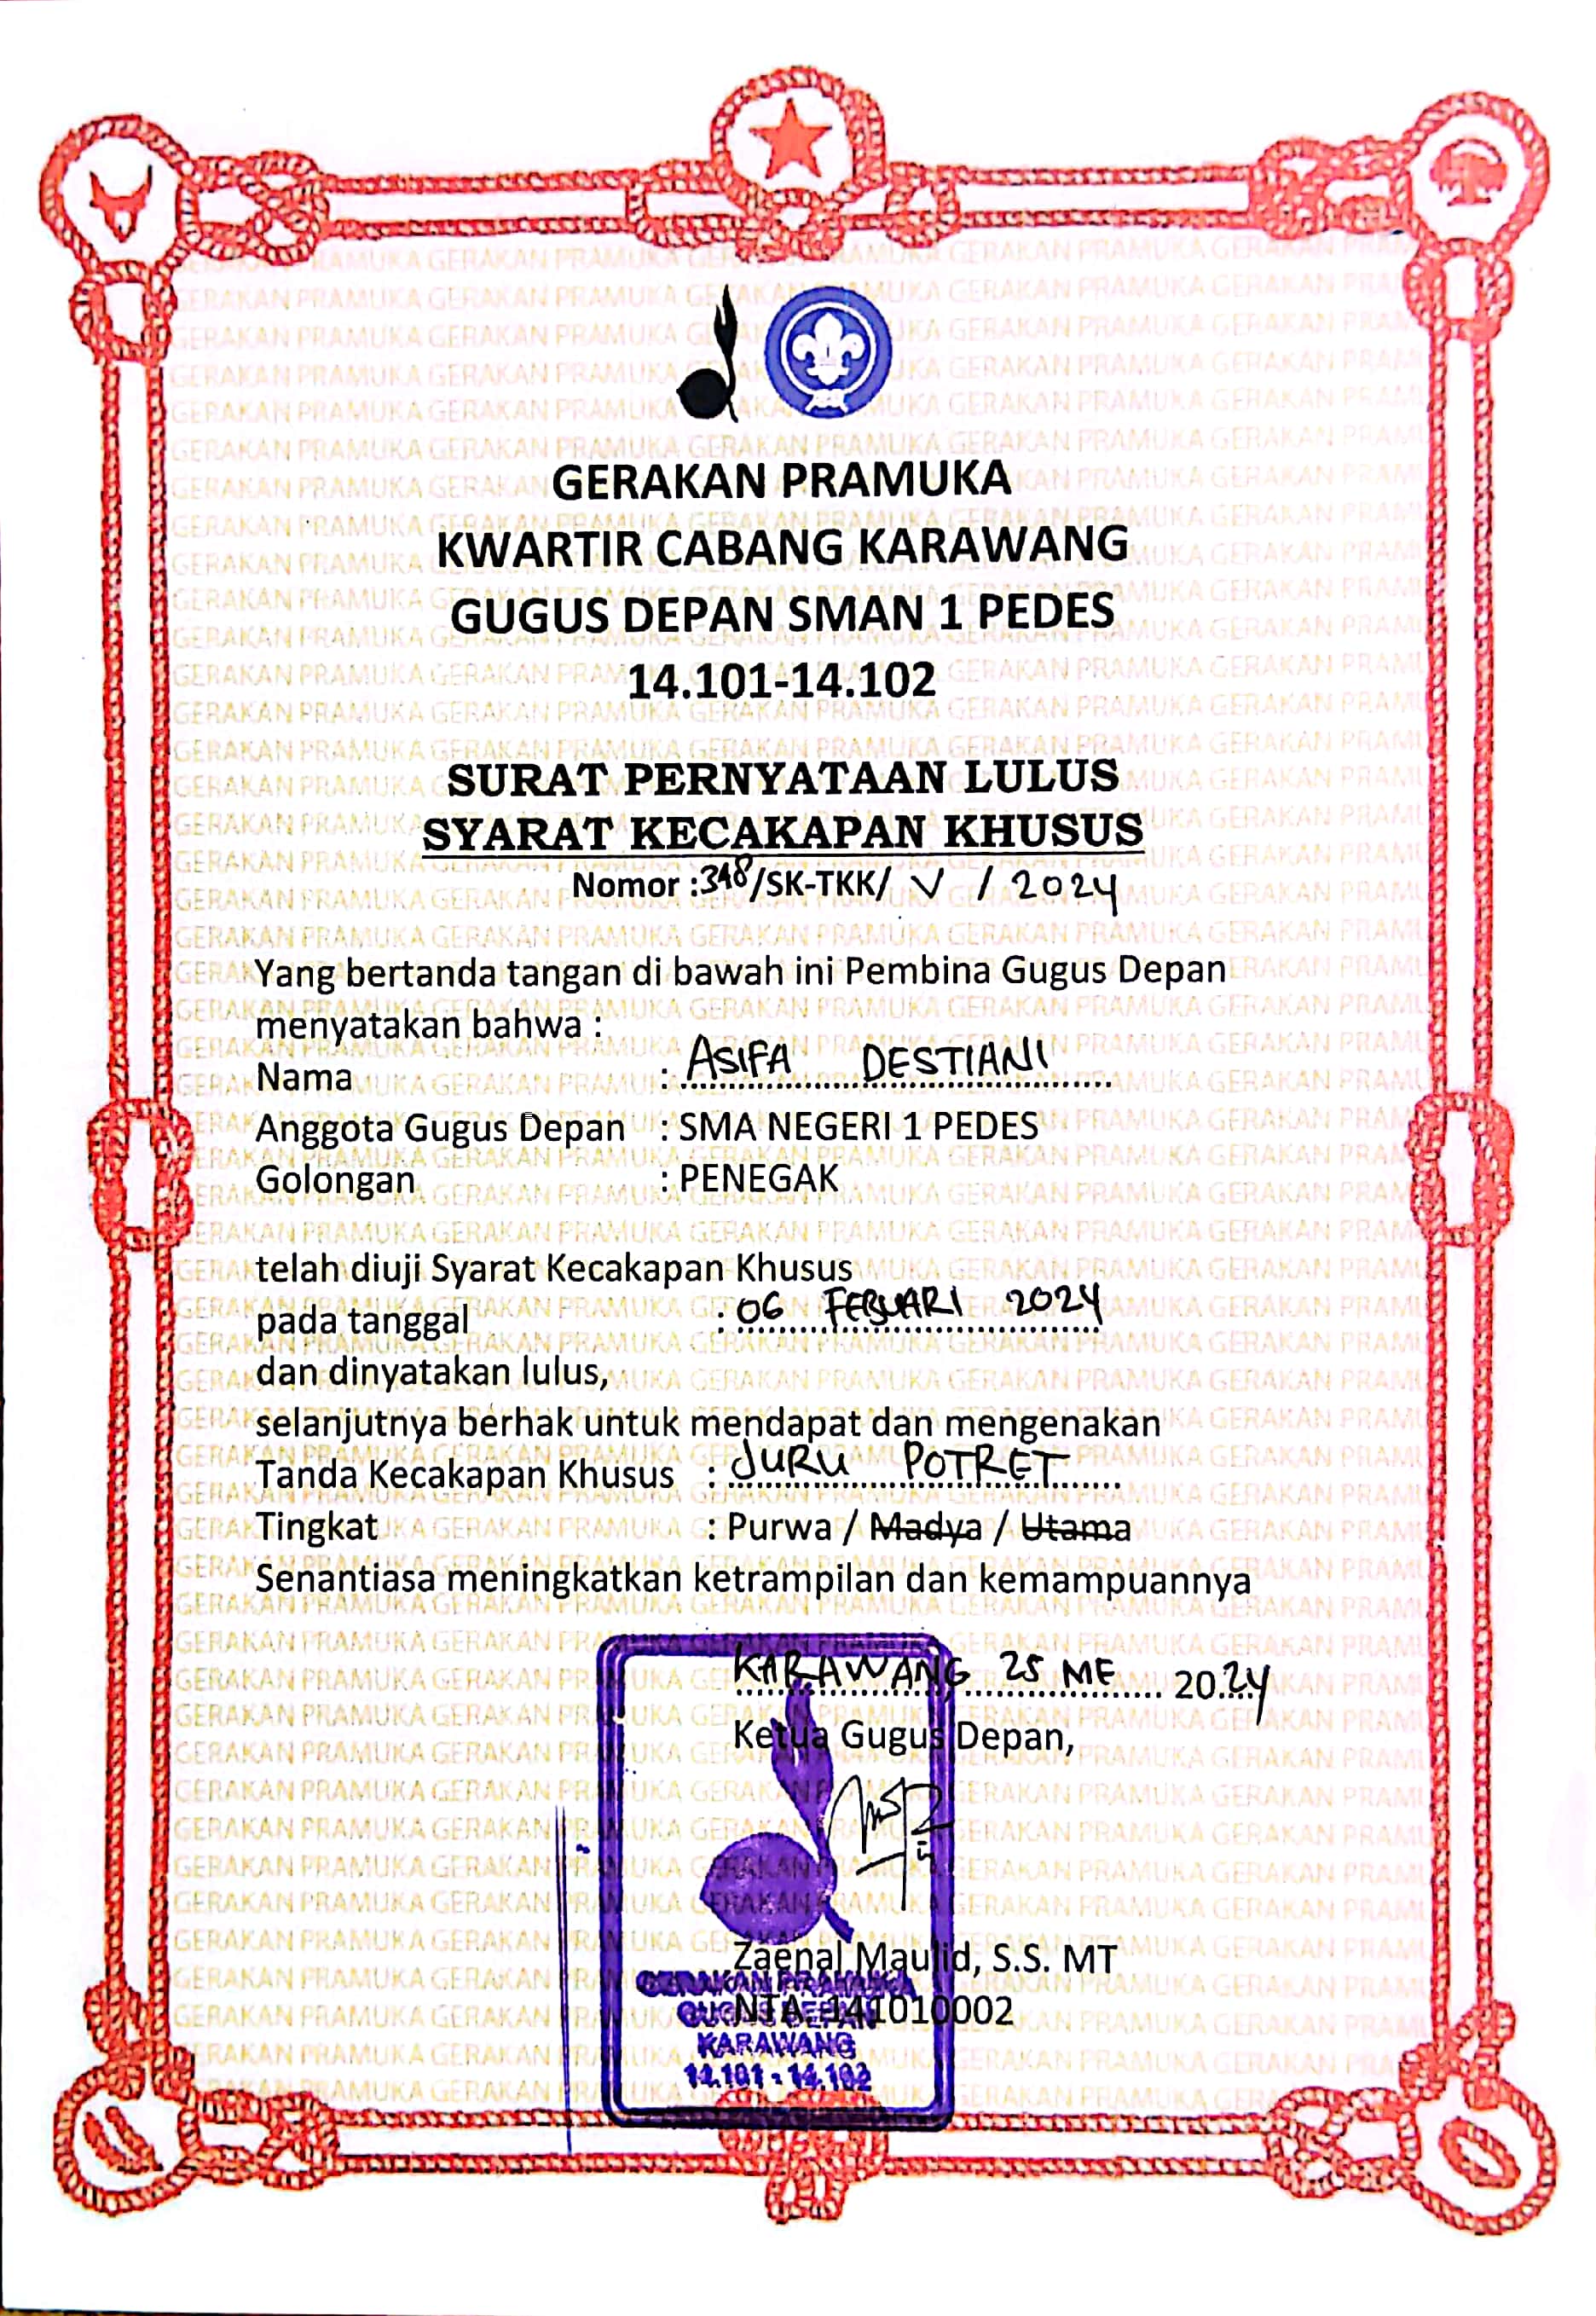 GERAKAN PRAMUKA
KWARTIR CABANG KARAWANG
GUGUS DEPAN SMAN 1 PEDES
14.101-14.102
SURAT PERNYATAAN LULUS
SYARAT KECAKAPAN KHUSUS
Nomor :348/SK-TKK/ V / 2024
Yang bertanda tangan di bawah ini Pembina Gugus Depan
menyatakan bahwa :
Nama : ASIFA DESTIANI
Anggota Gugus Depan : SMA NEGERI 1 PEDES
Golongan : PENEGAK
telah diuji Syarat Kecakapan Khusus
pada tanggal : 06 FEBUARI 2024
dan dinyatakan lulus,
selanjutnya berhak untuk mendapat dan mengenakan
Tanda Kecakapan Khusus : JURU POTRET
Tingkat : Purwa / Madya / Utama
Senantiasa meningkatkan ketrampilan dan kemampuannya
KARAWANG, 25 ME 2024
Ketua Gugus Depan,
Zaenal Maulid, S.S. MT
NTA. 141010002
GERAKAN PRAMUKA
GUGUS DEPAN
KARAWANG
14.101 - 14.102